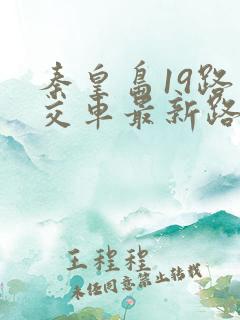 秦皇岛19路
交车最新路
王程程
未经同意禁止转载